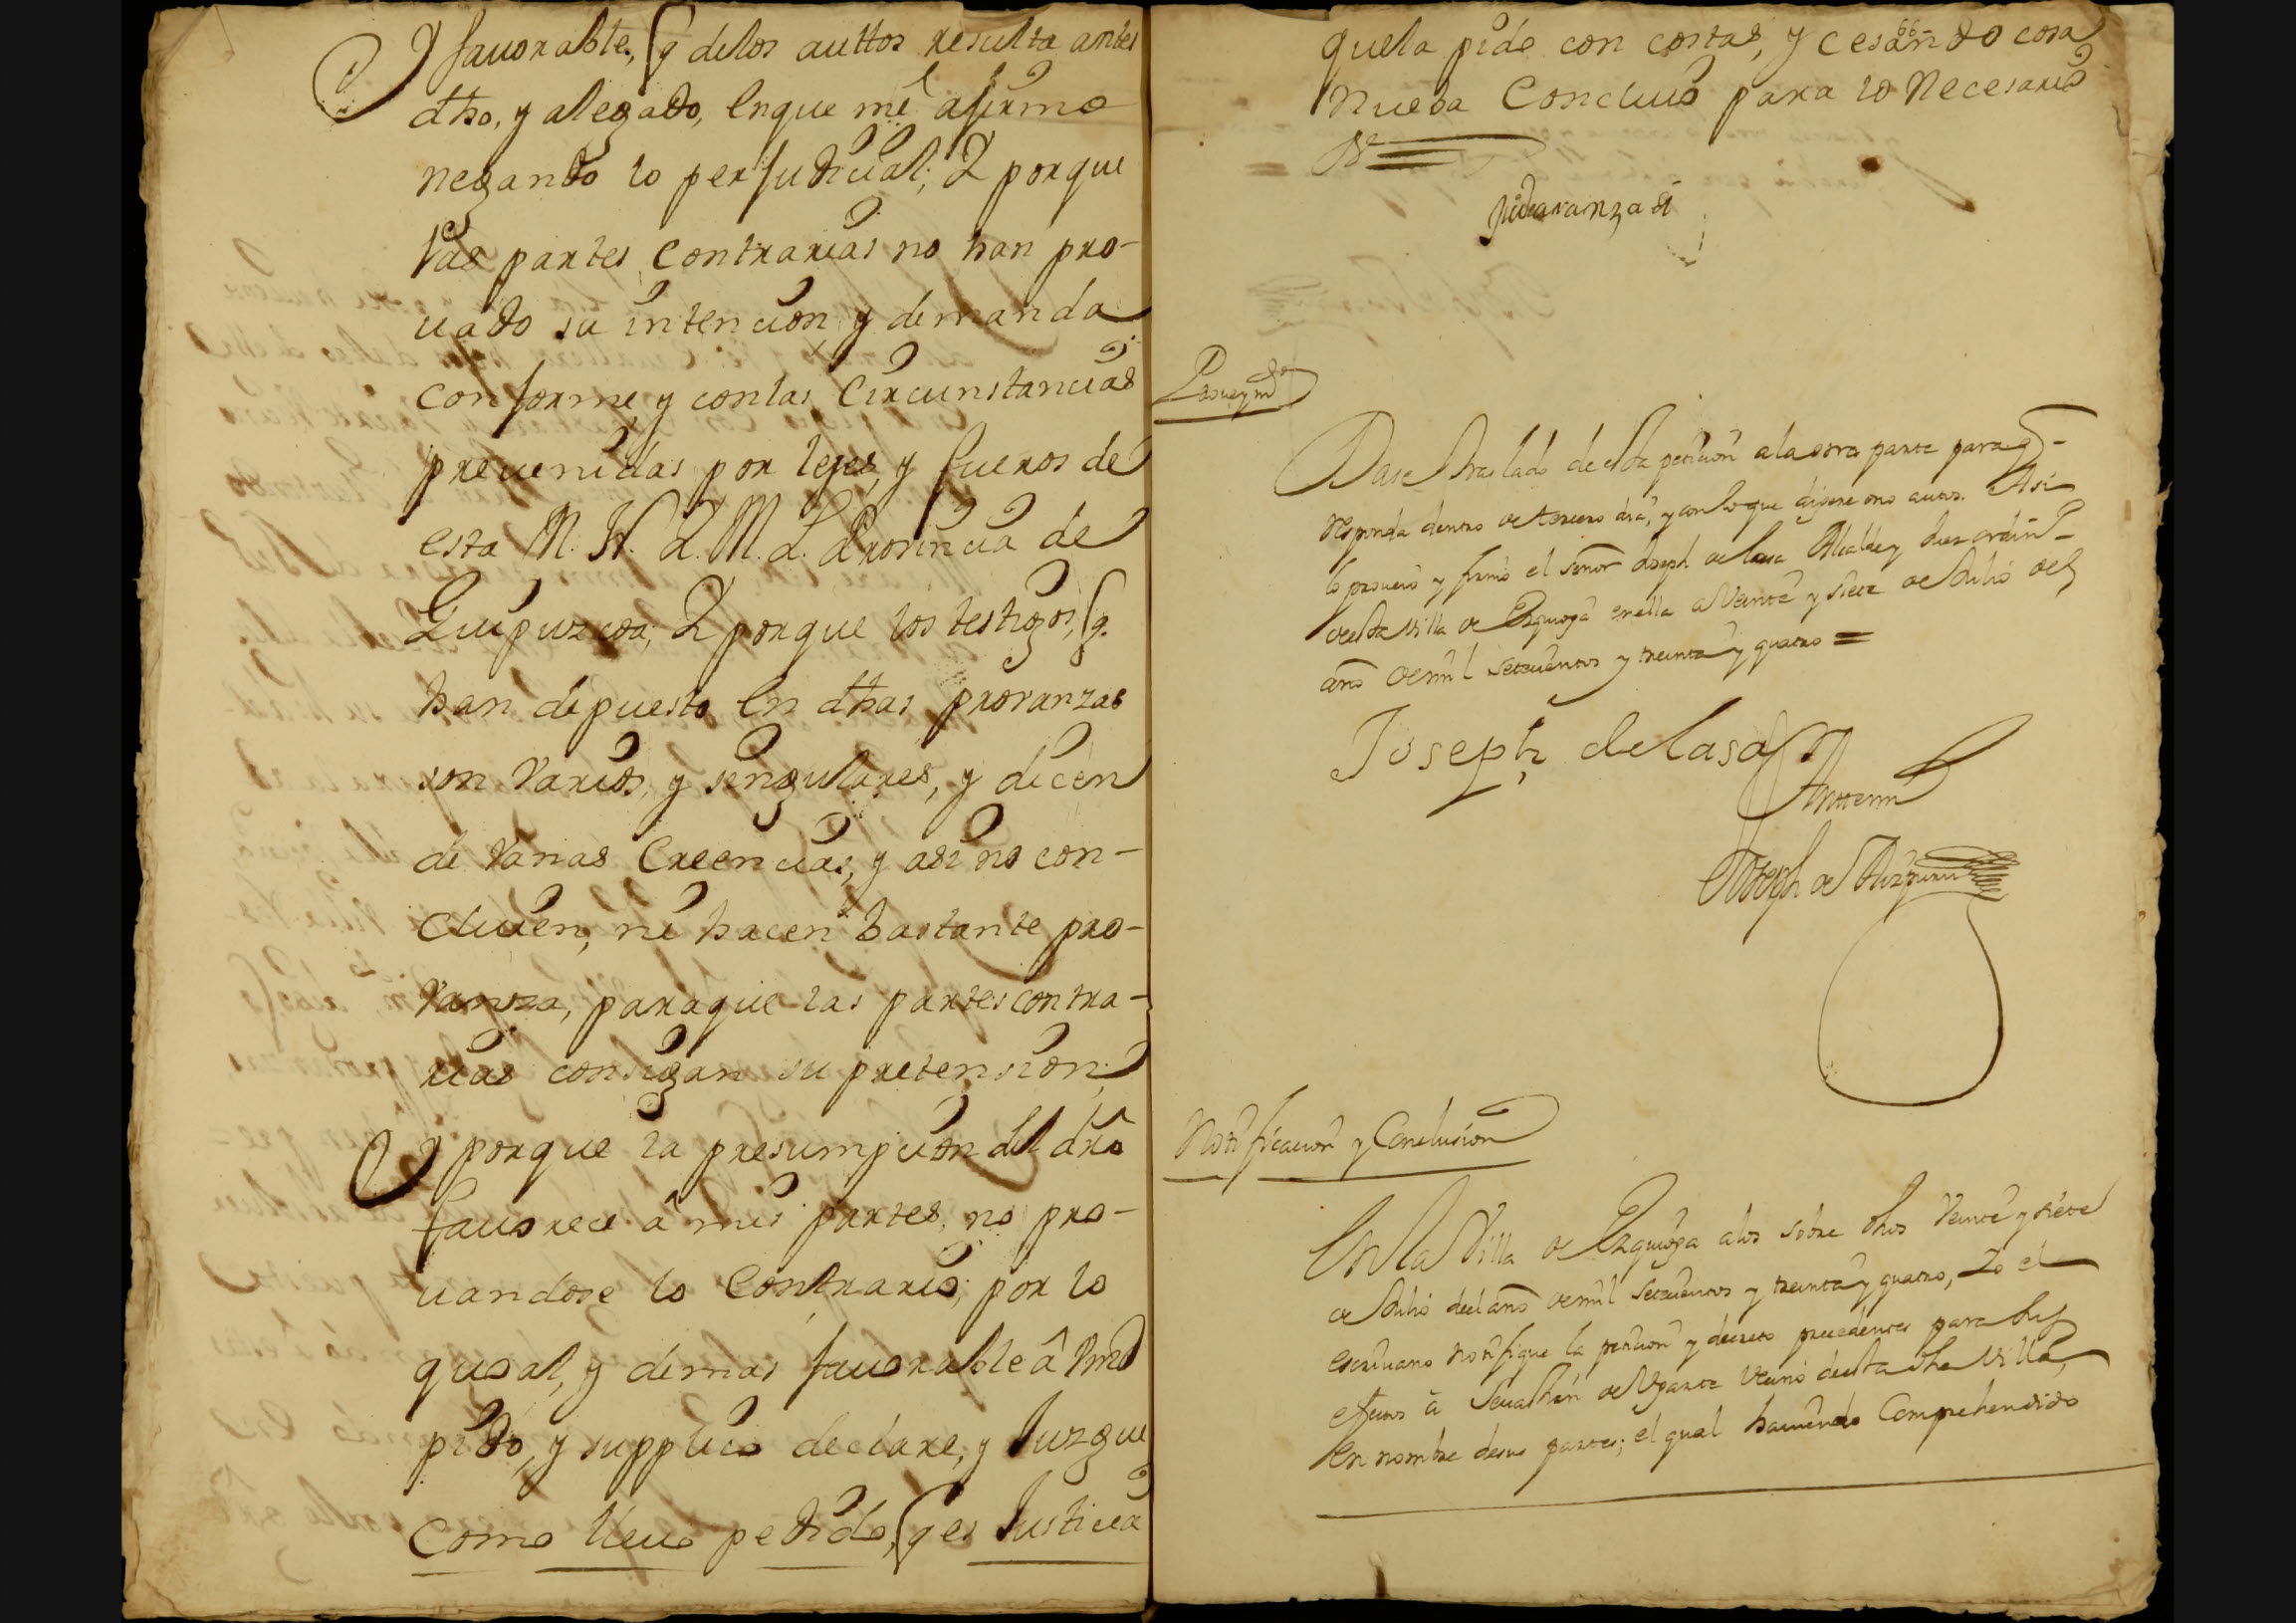 favorable, q delos auttos resulta antes
dho, y alegado, enque me afirmo
negando lo perjudicial; Y porque
las partes contrarias no han pro-
uado su intencion, y demanda
conforme, y conlas Circunstancias
preuenidas por leyes, y fueros de
esta M. N. Y. M. L. Provincia de
Guipuzcoa; Y porque los testigos, q.
han depuesto en dhas provanzas
son Varios, y singulares, y dicen
de Varias Creencias, y asi no con-
cluien, ni hacen bastante pro-
Vanza, paraque las partes contra-
rias consigan su pretension;
Y porque la presumpcion del dro
fauorece â mis partes, no pro-
uandose lo Contrario; por lo
qual, y demas fauorable â Vmd
pido, y supplico declare, y Juzgue
como lleuo pedido, q es Justicia
66
quela pido con costas, y cesando cosa
nueba Concluio para lo necesario
Dase traslado de esta peticion ala otra parte paraq
responda dentro de tercero dia, y con lo que dijere ono autos. Asi
lo proueio y firmo el señor Joseph de lasa Alcalde y Juez ordin.º
de esta Villa de Ezquioga enella a Veinte y siete de Julio del
año de mill setecientos y treinta y quatro =
Joseph de lasa
Antemi
Joseph de Aizpuru
Notificacion y Conclusion
En la Villa de Ezquioga alos sobre dhos Veinte y siete
de Julio del año de mill setecientos y treinta y quatro, Yo el
escriuano notifique la peticion y decreto precedentes para sus
efectos a Seuastian de Ugarte Vecino de esta dha Villa,
en nombre desus partes; el qual hauiendo Comprehendido